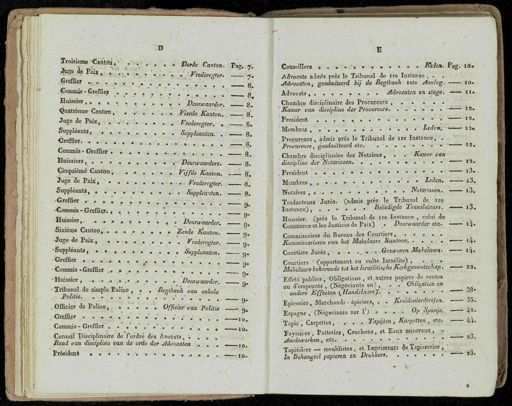 D
Troisieme Canton, Derde Canton. Pag. 7.
Juge de Paix, Vrederegter. — 7.
Greffier — 8.
Commis-Greffier — 8.
Huissier, Deurwaarder. — 8.
Quatrieme Canton, Vierde Kanton. — 8.
Juge de Paix, Vrederegter. — 8.
Suppléants, Suppleanten. — 8.
Greffier, — 8.
Commis-Greffier — 8.
Huissiers, Deurwaarders. — 8.
Cinquième Canton, Vijfde Kanton. — 8.
Juge de Paix, Vrederegter. — 8.
Suppléants, Suppleanten. — 8.
Greffier — 9.
Commis-Greffier. — 9.
Huissier, Deurwaarder. — 9.
Sixième Canton, Zesde Kanton. — 9.
Juge de Paix, Vrederegter. — 9.
Suppléants, Suppleanten. — 9.
Greffier — 9.
Commis-Greffier — 9.
Huissier, Deurwaarder. — 9.
Tribunal de simple Police, Regtbank van enkele
Politie. — 9.
Officier de Police, Officier van Politie — 9.
Greffier — 10.
Commis-Greffier — 10.
Conseil Disciplinaire de l'ordre des Avocats,
Raad van discipline van de orde der Advocaten — 10.
Président — 10.
E
Conseillers Raden. Pag. 10.
Advocats admis près le Tribunal de 1re Instance,
Advocaten, geadmitteerd bij de Regtbank 1ste Aanleg. — 10.
Advocats, Advocaten en stage. — 11.
Chambre disciplinaire des Procureurs,
Kamer van discipline der Procureurs. — 12.
President — 12.
Membres, Leden. — 12.
Procureurs, admis près le Tribunal de 1re Instance,
Procureurs, geadmitteerd etc. — 12.
Chambre disciplinaire des Notaires, Kamer van
discipline der Notarissen. — 13.
President — 13.
Membres, Leden. — 13.
Notaires, Notarissen. — 13.
Traducteurs Juris. (admis près le Tribunal de 1re
Instance), Beëedigde Translateurs. — 13.
Huissier. (près le Tribunal de 1re Instance, celui de
Commerce et les Justices de Paix) Deurwaarder etc. — 14.
Commissaires du Bureau des Courtiers,
Kommissarissen van het Makelaars Kantoor. — 14.
Courtiers Jurés, Gezworen Makelaars. — 14.
Courtiers (appartenant au culte Israëlite),
Makelaars behorende tot het Israëlitische Kerkgenootschap. — 22.
Effets publics, Obligations, et autres papiers de rentes
ou d'emprunts, (Négociants en) Obligatien en
andere Effecten (Handelaars). — 38.
Epiceries, Marchands-épiciers, Kruideniersdrijën. — 35.
Espagne, (Négociants sur l') Op Spanje. — 42.
Tapis, Carpettes, Tapijten, Karpetten, etc. — 44.
Fayences, Potteries, Cruchons, et Eaux minéraux,
Aardewerken, etc. — 23.
Tapissiers — meublistes, et Imprimeurs de Tapisseries,
In Behangsel papieren en Drukkers. — 23.